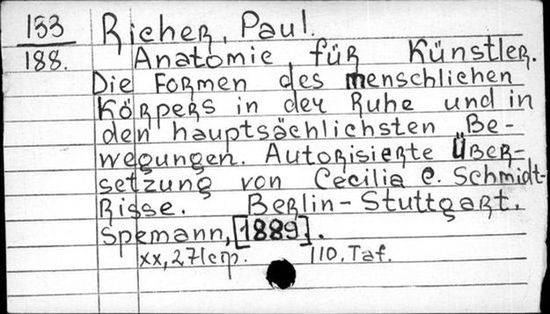 153 Richer, Paul.
188. Anatomie für Künstler.
Die Formen des menschlichen
Körpers in der Ruhe und in
den hauptsächlichsten Be-
wegungen. Autorisierte Über-
setzung von Cecilia e. Schmidt-
Risse. Berlin-Stuttgart.
Spemann, [1889].
xx, 271 cтp. 110. Taf.